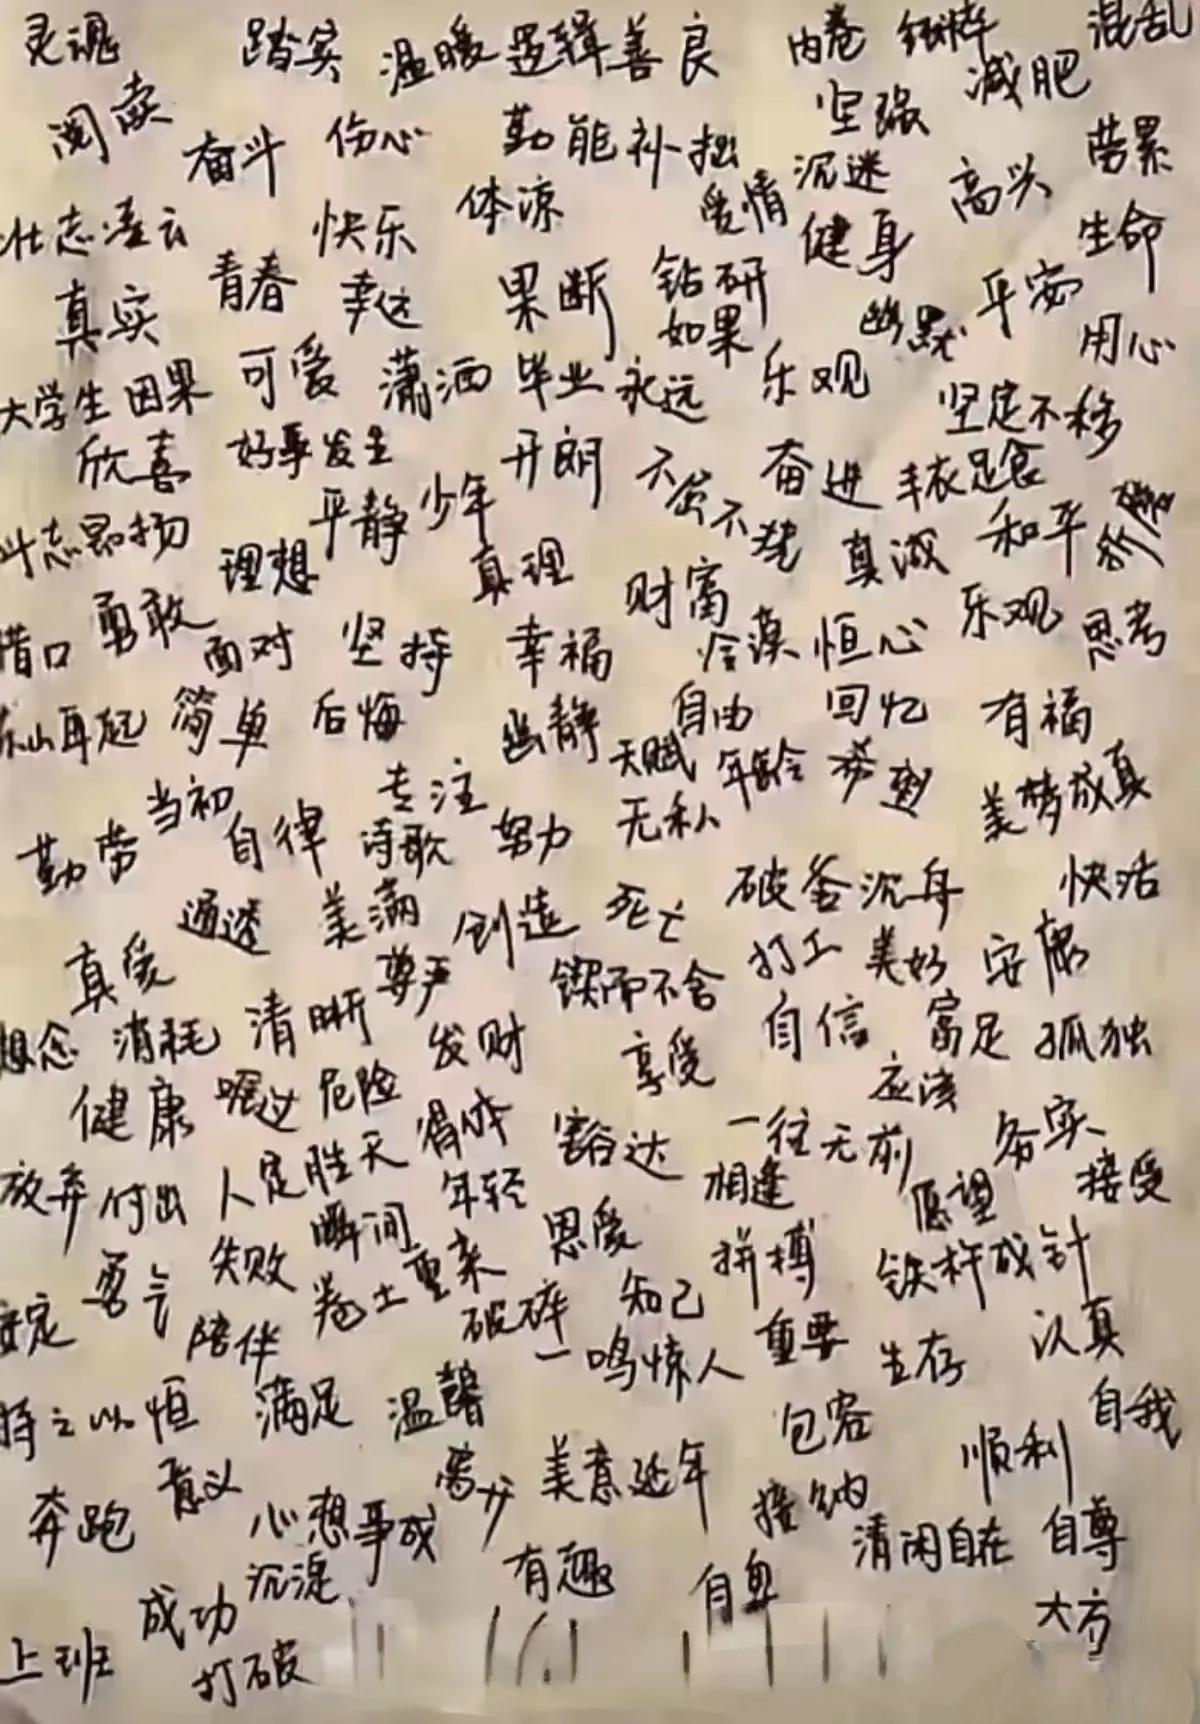 灵魂 踏实 温暖 逻辑 善良 内卷 纯粹 混乱
阅读 奋斗 伤心 勤能补拙 坚强 减肥
沉迷 劳累
壮志凌云 快乐 体凉 爱情 健身 高兴 生命
真实 青春 幸运 果断 钻研 幽默 平安
如果 用心
大学生 因果 可爱 潇洒 毕业 永远 乐观 坚定不移
欣喜 好事发生 开朗 不屈不挠 奋进 丰衣足食
斗志昂扬 平静 少年 真诚 和平
理想 真理 财富
借口 勇敢 面对 坚持 幸福 冷漠 恒心 乐观 思考
东山再起 简单 后悔 幽静 自由 回忆 有福
当初 专注 天赋 年龄 希望 美梦成真
勤劳 自律 诗歌 努力 无私
通透 美满 创造 死亡 破釜沉舟 快活
真爱 尊严 锲而不舍 打工 美好 安康
想念 消耗 清晰 发财 享受 自信 富足 孤独
健康 嘱过 危险 得体 豁达 一往无前 应该 务实
放弃 付出 人定胜天 年轻 相逢 愿望 接受
勇气 失败 瞬间 卷土重来 恩爱 拼搏 铁杵成针
安定 陪伴 破碎 知己 重要 生存 认真
一鸣惊人
持之以恒 满足 温馨 包容 自我
奔跑 意义 心想事成 离开 美意延年 接纳 顺利
沉淀 有趣 自卑 清闲自在 自尊
成功 大方
上班 打破